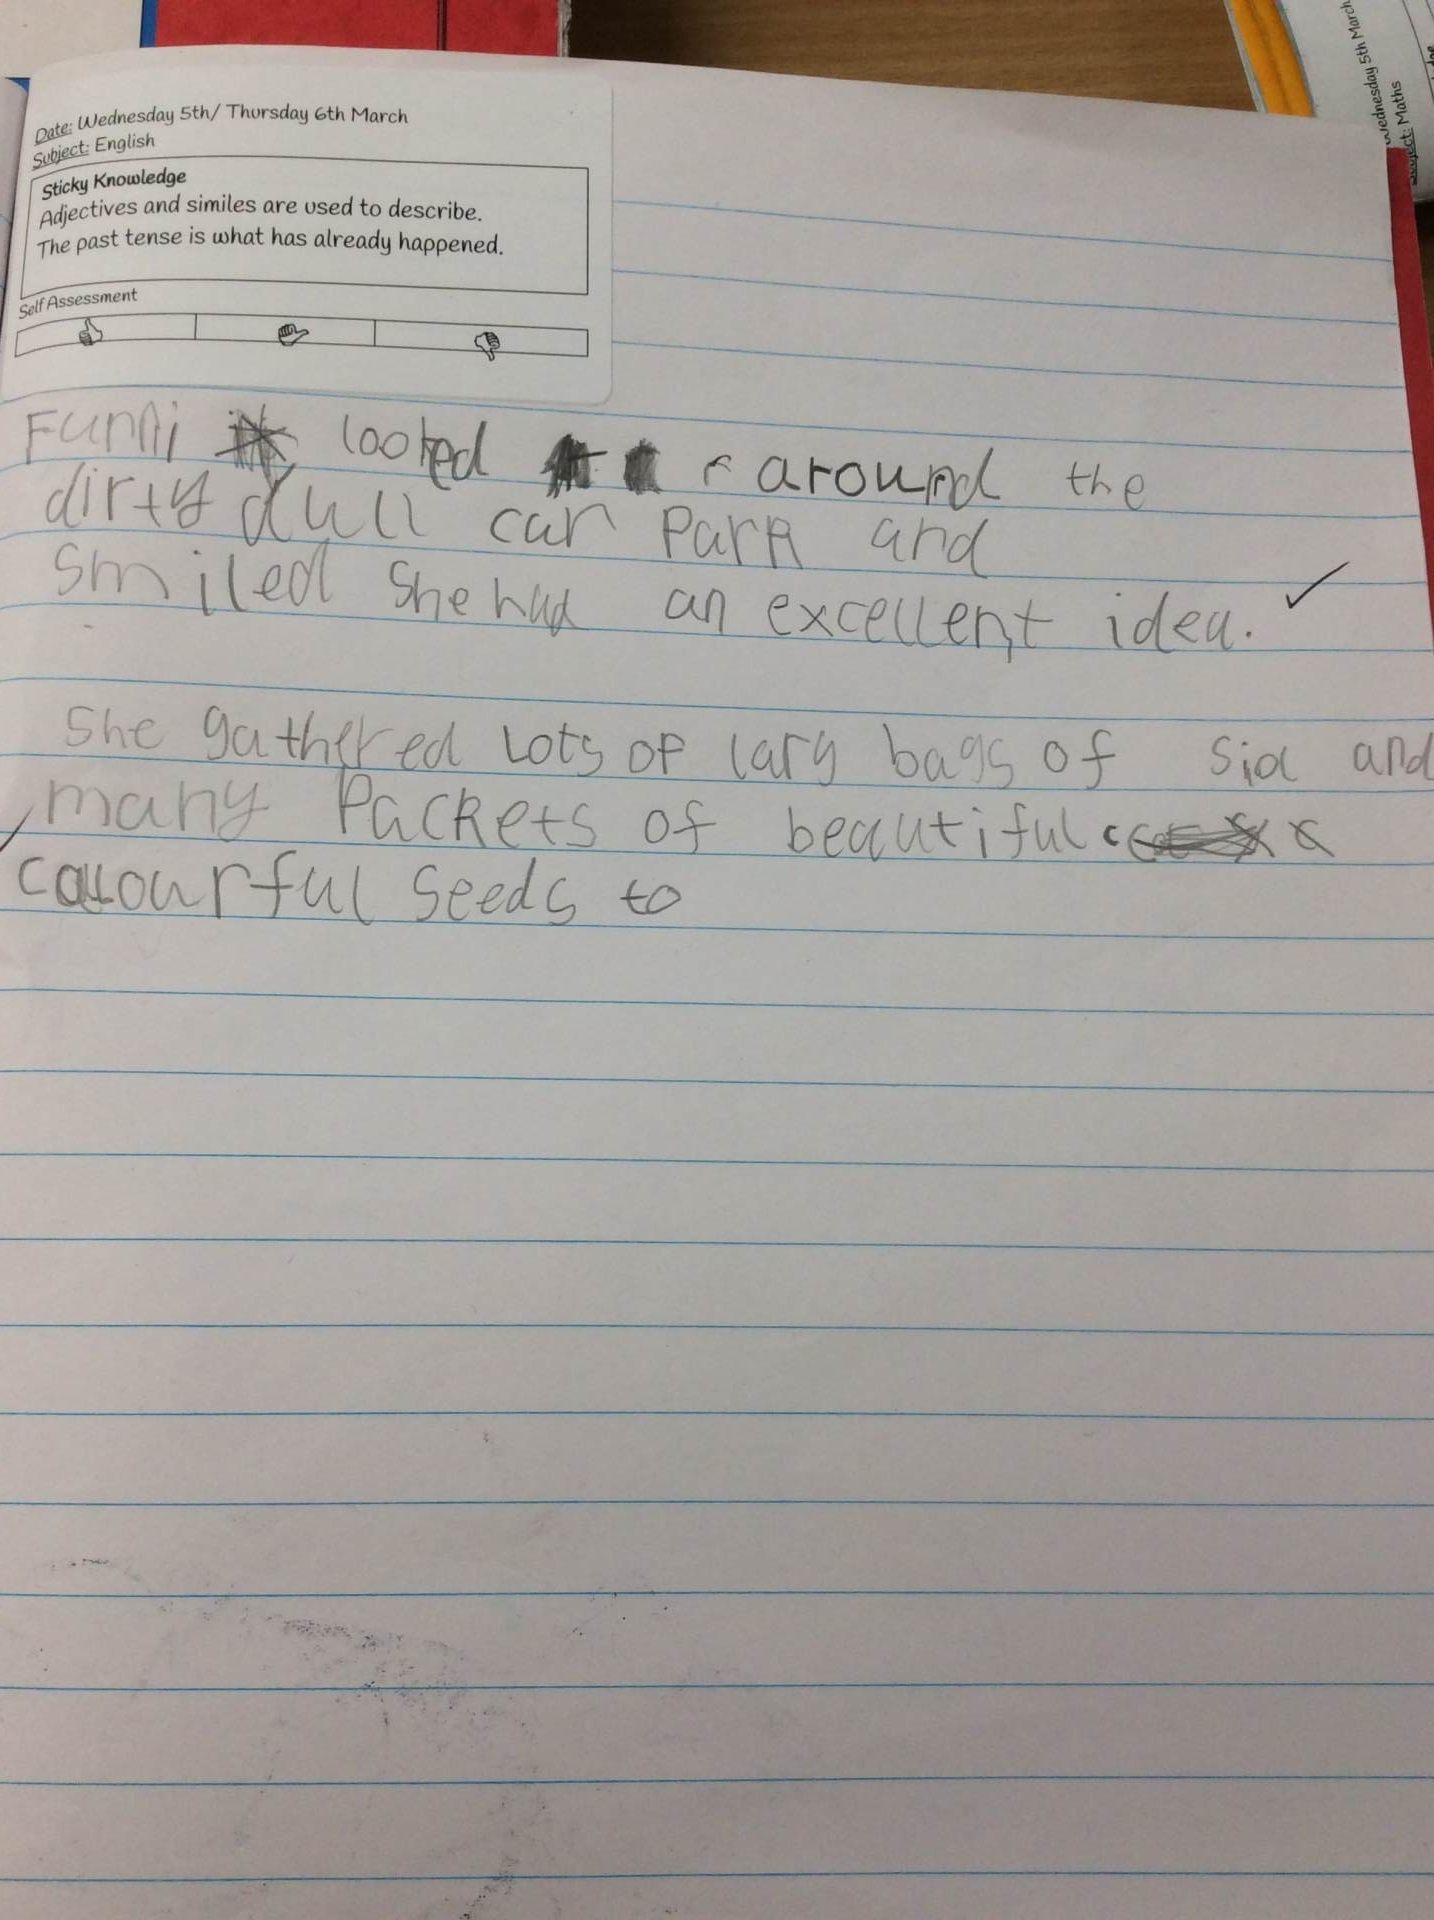 Date: Wednesday 5th/ Thursday 6th March
Subject: English
Sticky Knowledge
Adjectives and similes are used to describe.
The past tense is what has already happened.
Self Assessment
Funmi looked around the
dirty dull car Park and
Smiled She had an excellent idea.
She gathered Lots of larg bags of Siol and
many Packets of beautiful
colourful Seeds to
Wednesday 5th March
Subject: Maths